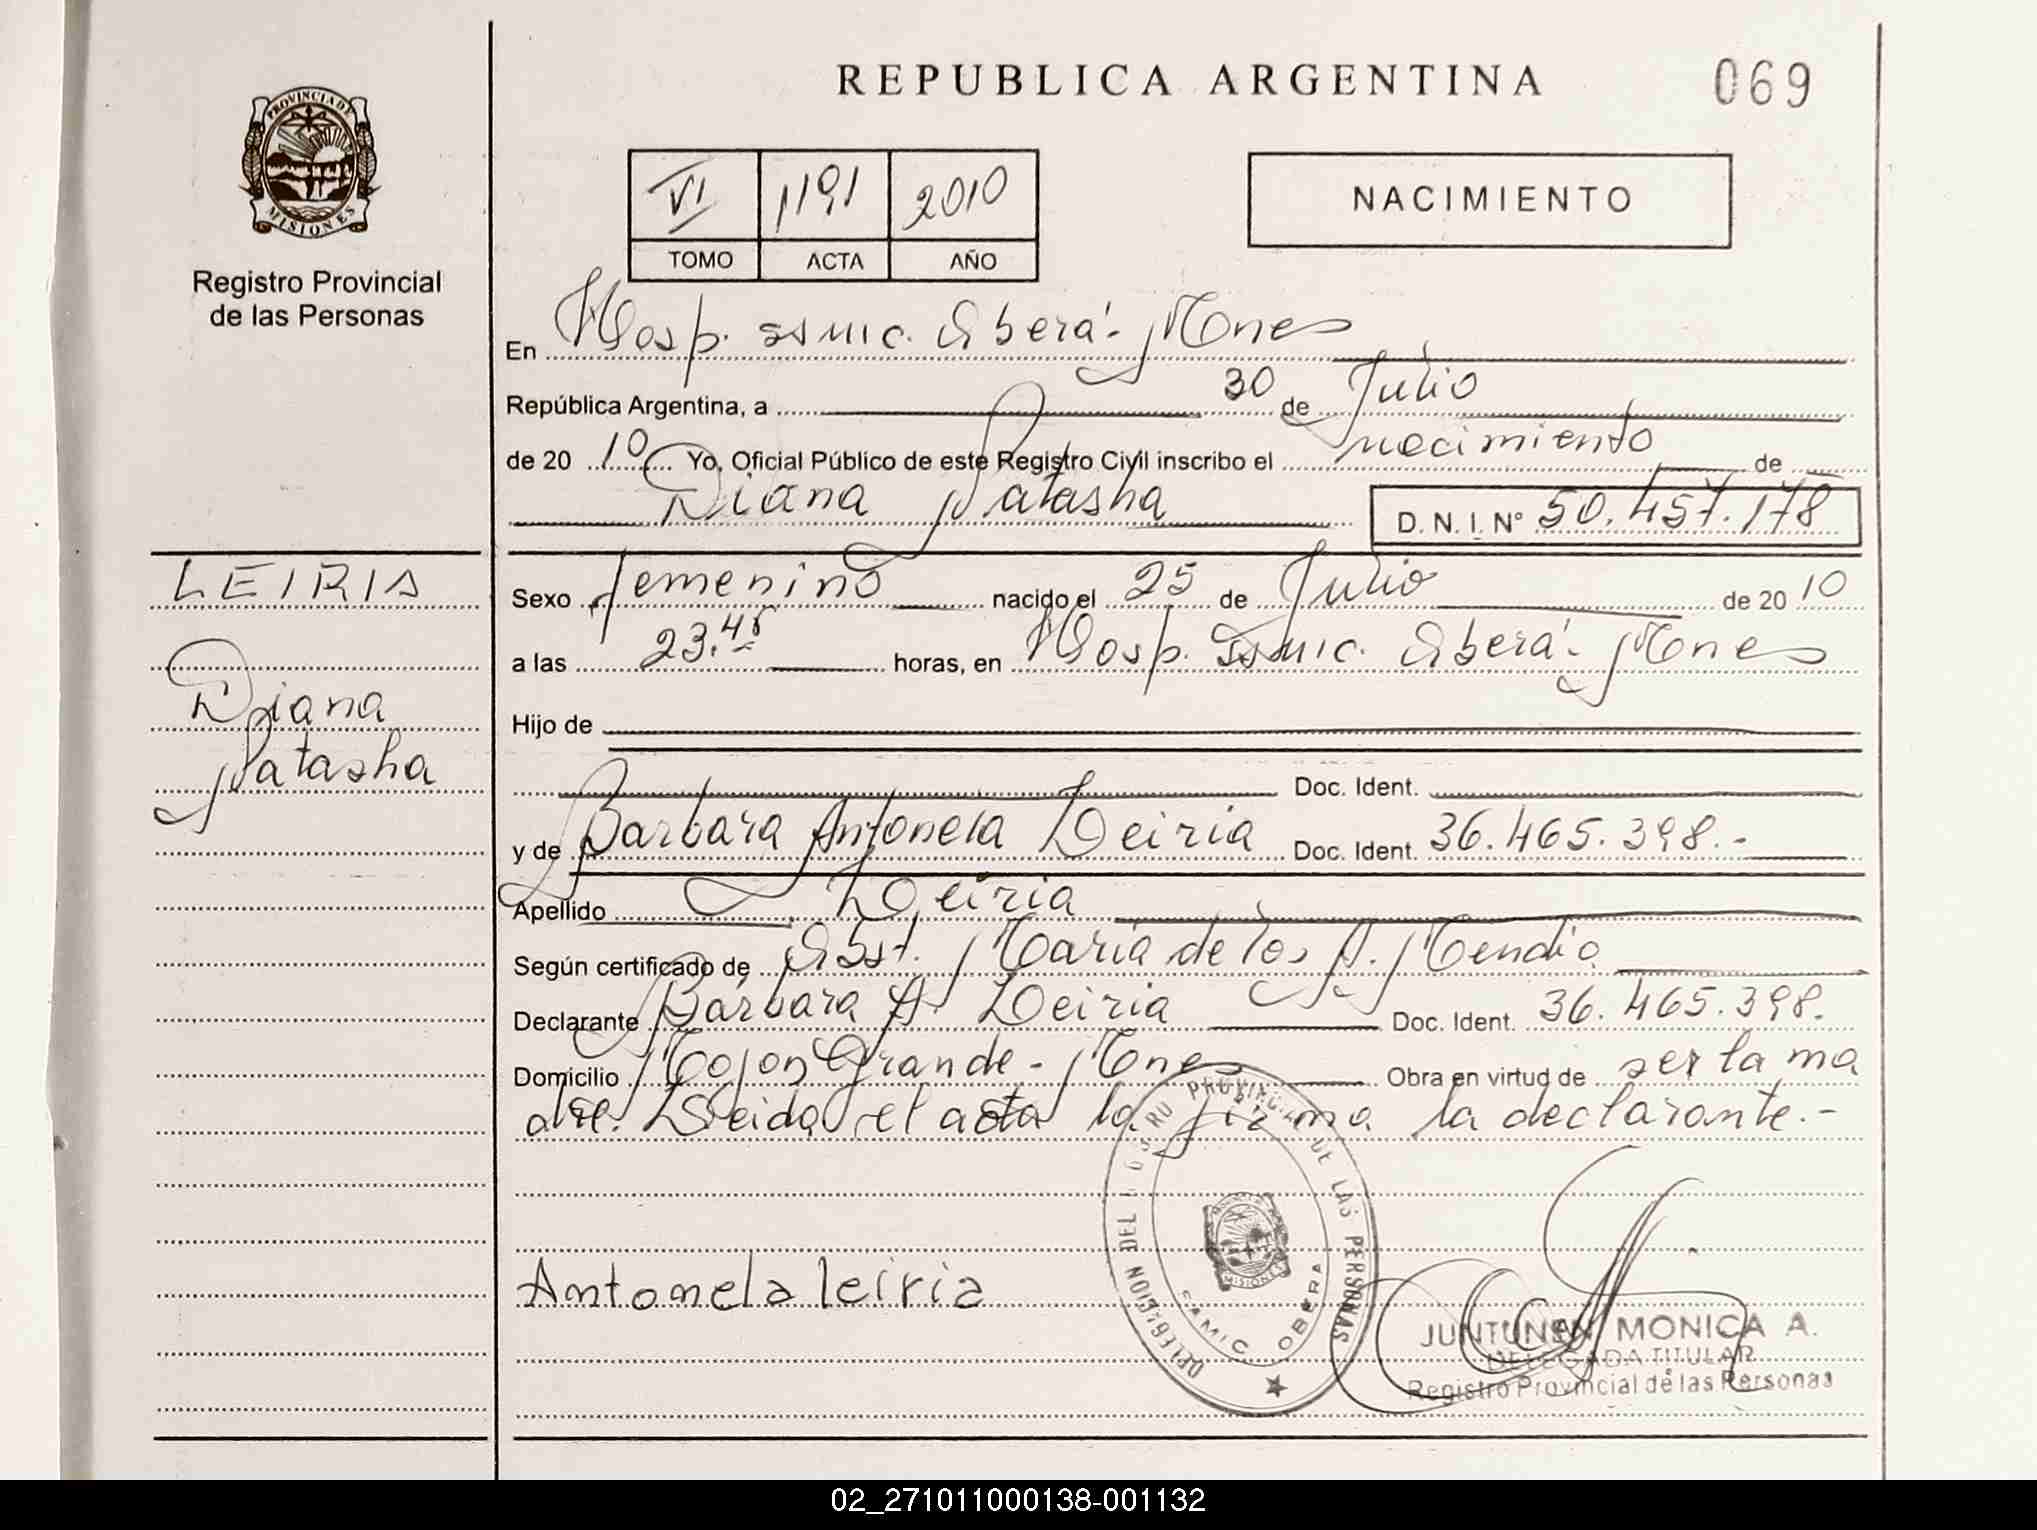 REPUBLICA ARGENTINA
069
PROVINCIA DE
MISIONES
Registro Provincial
de las Personas
VI 1191 2010
TOMO ACTA AÑO
NACIMIENTO
En Hosp. SAMIC. Oberá - Mnes
República Argentina, a 30 de Julio
de 20 10 Yo, Oficial Público de este Registro Civil inscribo el nacimiento de
Diana Natasha
D. N. I. Nº 50.457.178
LEIRIA
Diana
Natasha
Sexo femenino nacido el 25 de Julio de 20 10
a las 23.45 horas, en Hosp. SAMIC. Oberá - Mnes
Hijo de
Doc. Ident.
y de Barbara Antonela Leiria Doc. Ident. 36.465.398.-
Apellido Leiria
Según certificado de Obst. Maria de los A. Mendio
Declarante Bárbara A. Leiria Doc. Ident. 36.465.398.
Domicilio Mojon Grande - Mnes Obra en virtud de ser la ma
dre. Leida el acta la firma la declarante.-
Antonela leiria
DELEGACION DEL PROVINCIAL DE LAS PERSONAS
SAMIC OBERA
MISIONES
JUNTUNEN MONICA A.
DELEGADA TITULAR
Registro Provincial de las Personas
02_271011000138-001132